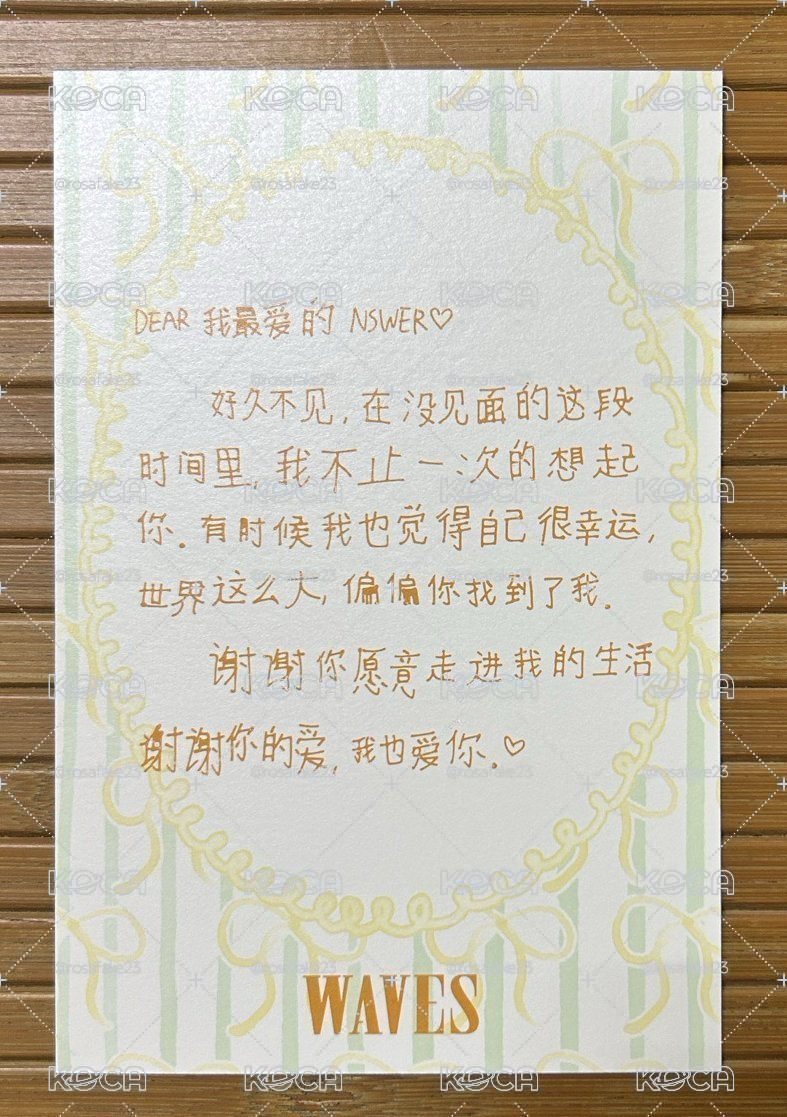 DEAR 我最爱的 NSWER♡
好久不见,在没见面的这段
时间里,我不止一次的想起
你.有时候我也觉得自己很幸运,
世界这么大,偏偏你找到了我.
谢谢你愿意走进我的生活
谢谢你的爱,我也爱你.♡
WAVES
KOCA
@rosafake23